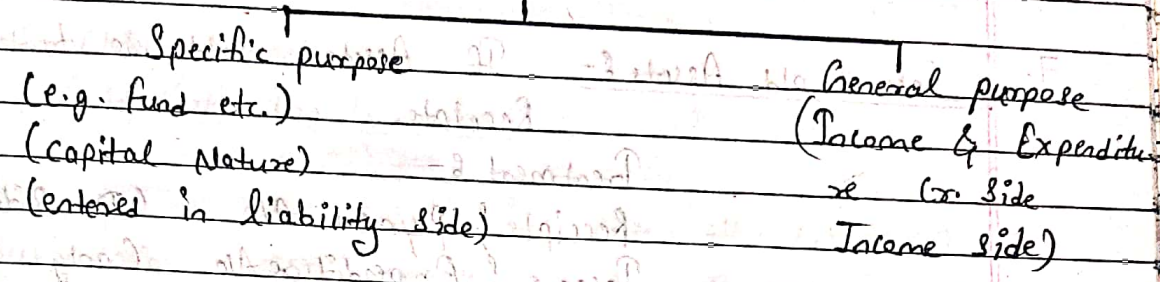 Specific purpose
(e.g. fund etc.)
(capital Nature)
(entered in liability side)
General purpose
(Income & Expenditu
re Cr. Side
Income side)